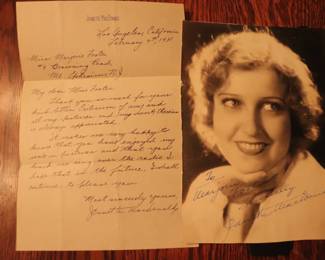 Jeanette MacDonald
Los Angeles, California
February 4th 1931
Miss Marjorie Foster
My dear Miss Foster
Thank you so much for your
kind letter. Criticism of any kind
of my pictures and my
is always appreciated.
It makes me very happy to
know that you have enjoyed my
work in pictures and that you
heard me sing over the radio. I
hope that in the future, I shall
continue to please you.
Most sincerely yours,
Jeanette MacDonald
To
Marjorie
Jeanette MacDonald